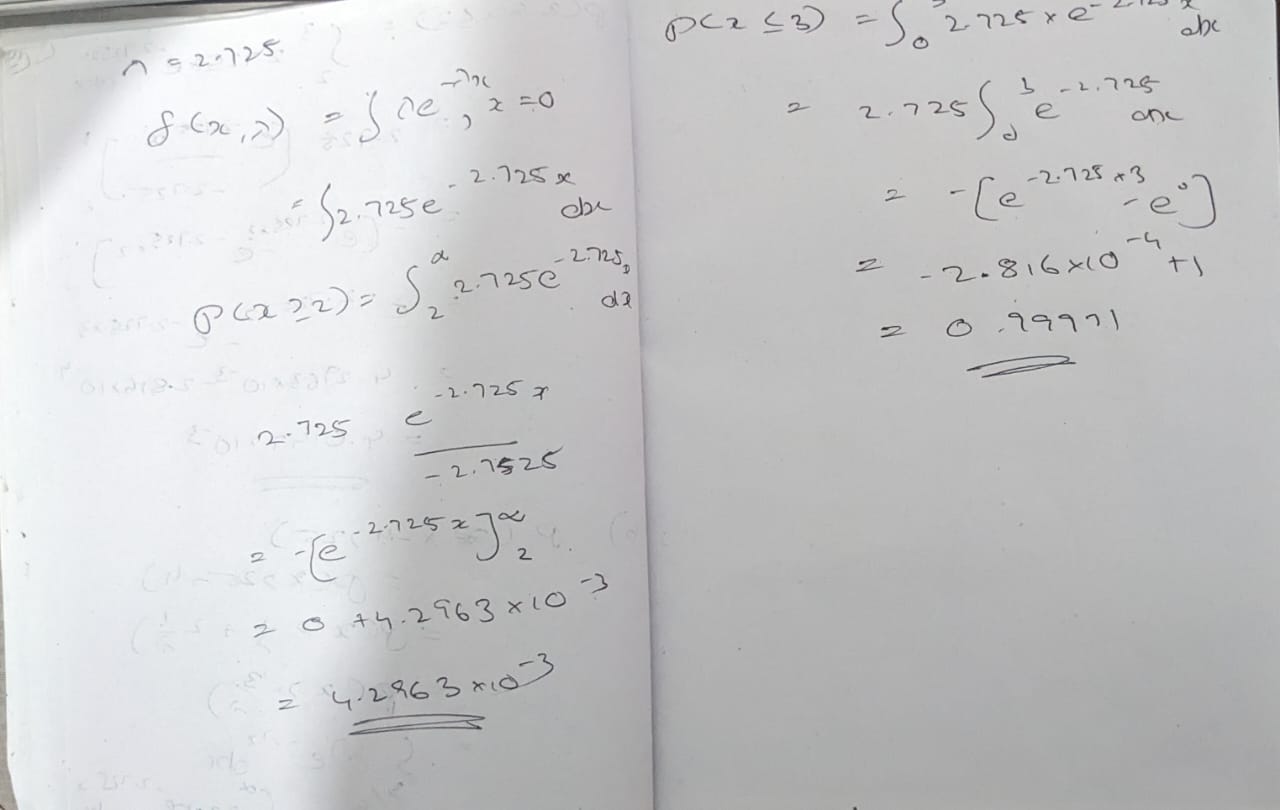 λ = 2.725.
f(x,λ) = ∫ λe^-λx, x=0
= ∫2.725e^-2.725x dx
P(x≥2) = ∫_2^α 2.725e^-2.725x dx
2.725 e^-2.725x / -2.7525
= -[e^-2.725x]_2^α
= 0 + 4.2963 × 10^-3
= 4.2963 × 10^-3
P(x ≤ 3) = ∫_0^3 2.725 × e^-2.725x dx
= 2.725 ∫_0^3 e^-2.725 dx
= -[e^-2.725×3 - e^0]
= -2.816×10^-4 +1
= 0.99971